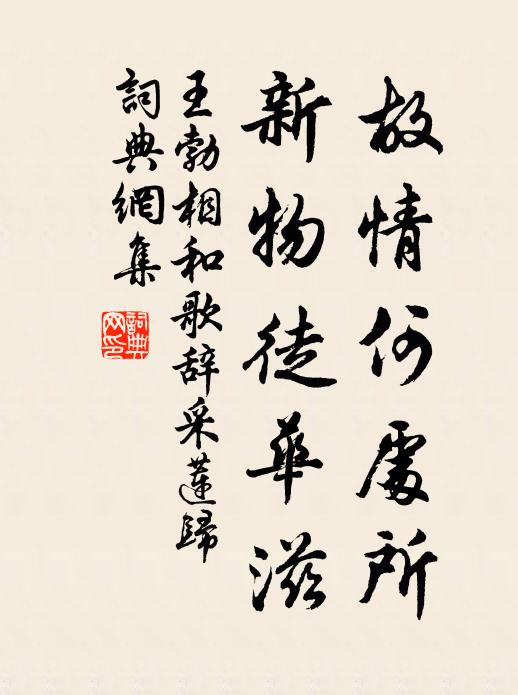 故情何處所
新物徒華滋
王勃相和歌辞采蓮歸
詞典網集
詞典網印